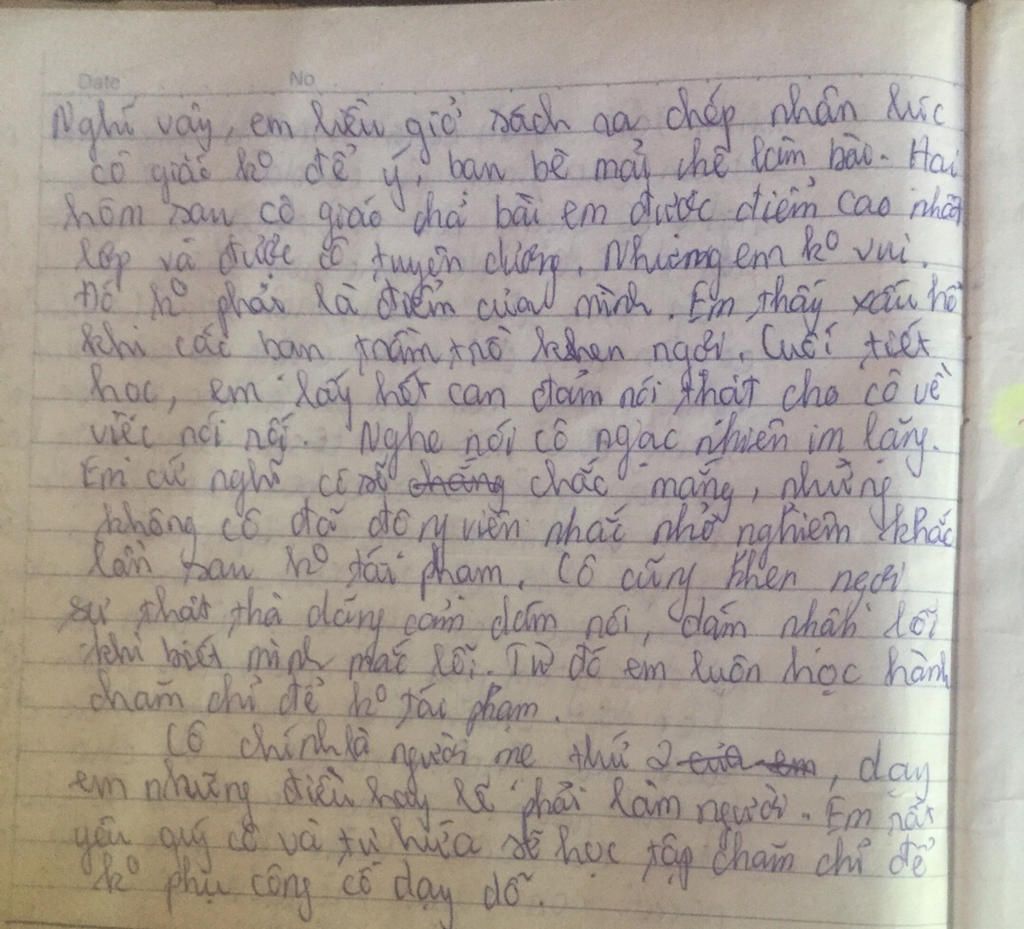 Date No
Nghĩ vậy, em liền giở sách ra chép nhân lúc
cô giáo kº để ý, bạn bè mải chế làm bào. Hai
hôm sau cô giáo chả bài em được điểm cao nhất
lớp và được cô tuyên dương. Nhưng em kº vui.
Đó kº phải là điểm của mình. Em thấy xấu hổ
khi các bạn trầm trồ khen ngợi. Cuối tiết
học, em lấy hết can đảm nói thật cho cô về
việc nói nối. Nghe nói cô ngạc nhiên im lặng.
Em cứ nghĩ cô sẽ chắc mắng, nhưng
không cô đã động viên nhắc nhở nghiêm khắc
lần sau kº tái phạm. Cô cũng khen ngợi
sự thật thà dũng cảm dám nói, dám nhận lỗi
khi biết mình mắc lỗi. Từ đó em luôn học hành
chăm chỉ để kº tái phạm.
Cô chính là người mẹ thứ 2 của em, dạy
em những điều hay lẽ phải làm người. Em rất
yêu quý cô và tự hứa sẽ học tập chăm chỉ để
kº phụ công cô dạy dỗ.